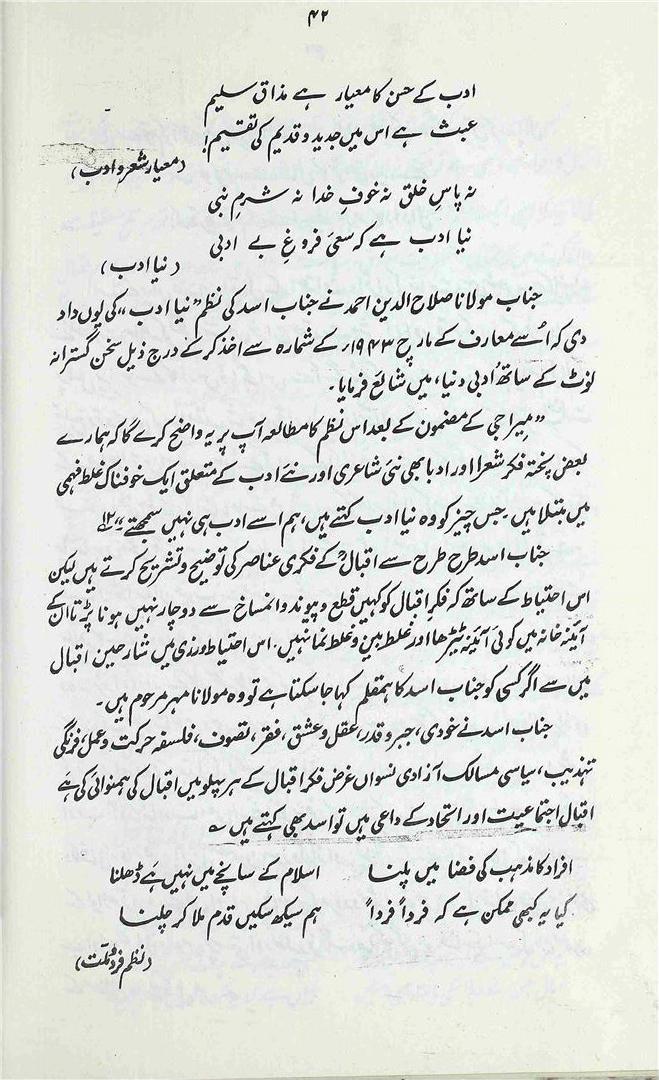 ۴۲
ادب کے حسن کا معیار ہے مذاق سلیم
عبث ہے اس میں جدید و قدیم کی تقسیم!
(معیار شعر و ادب)
نہ پاسِ خلق نہ خوفِ خدا نہ شرمِ نبی
نیا ادب ہے کہ سعیِ فروغِ بے ادبی
(نیا ادب)
جناب مولانا صلاح الدین احمد نے جناب اسد کی نظم ”نیا ادب“ کی یوں داد
دی کہ اُسے معارف کے مارچ ۱۹۴۳ء کے شمارہ سے اخذ کر کے درج ذیل سخن گسترانہ
نوٹ کے ساتھ ’ادبی دنیا‘ میں شائع فرمایا۔
”میراجی کے مضمون کے بعد اس نظم کا مطالعہ آپ پر یہ واضح کرے گا کہ ہمارے
بعض پختہ فکر شعرا اور ادبا بھی نئی شاعری اور نئے ادب کے متعلق ایک خوفناک غلط فہمی
میں مبتلا ہیں۔ جس چیز کو وہ نیا ادب کہتے ہیں، ہم اسے ادب ہی نہیں سمجھتے“ ۱۲
جناب اسد طرح طرح سے اقبالؒ کے فکری عناصر کی توضیح و تشریح کرتے ہیں لیکن
اس احتیاط کے ساتھ کہ فکرِ اقبال کو کہیں قطع و پیوند و انمساخ سے دوچار نہیں ہونا پڑتا ان کے
آئینہ خانہ میں کوئی آئینہ ٹیڑھا اور غلط بین و غلط نما نہیں۔ اس احتیاط ورزی میں شارحین اقبال
میں سے اگر کسی کو جناب اسد کا ہمقلم کہا جا سکتا ہے تو وہ مولانا مہر مرحوم ہیں۔
جناب اسد نے خودی، جبر و قدر، عقل و عشق، فقر، تصوف، فلسفہ حرکت و عمل، فرنگی
تہذیب، سیاسی مسالک آزادی نسواں غرض فکر اقبال کے ہر پہلو میں اقبال کی ہمنوائی کی ہے
اقبال اجتماعیت اور اتحاد کے داعی ہیں تو اسد بھی کہتے ہیں ؎
افراد کا مذہب کی فضا میں پلنا اسلام کے سانچے میں نہیں ہے ڈھلنا
کیا یہ کبھی ممکن ہے کہ فرداً فرداً ہم سیکھ سکیں قدم ملا کر چلنا
(نظم فرد و ملت)